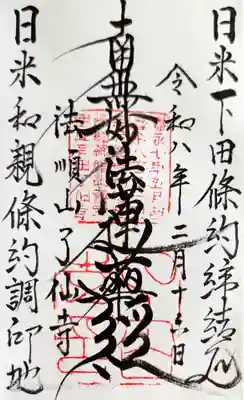 日米下田條約締結所
令和八年二月十六日
南無妙法蓮華経
法順山了仙寺
日米和親條約調印地